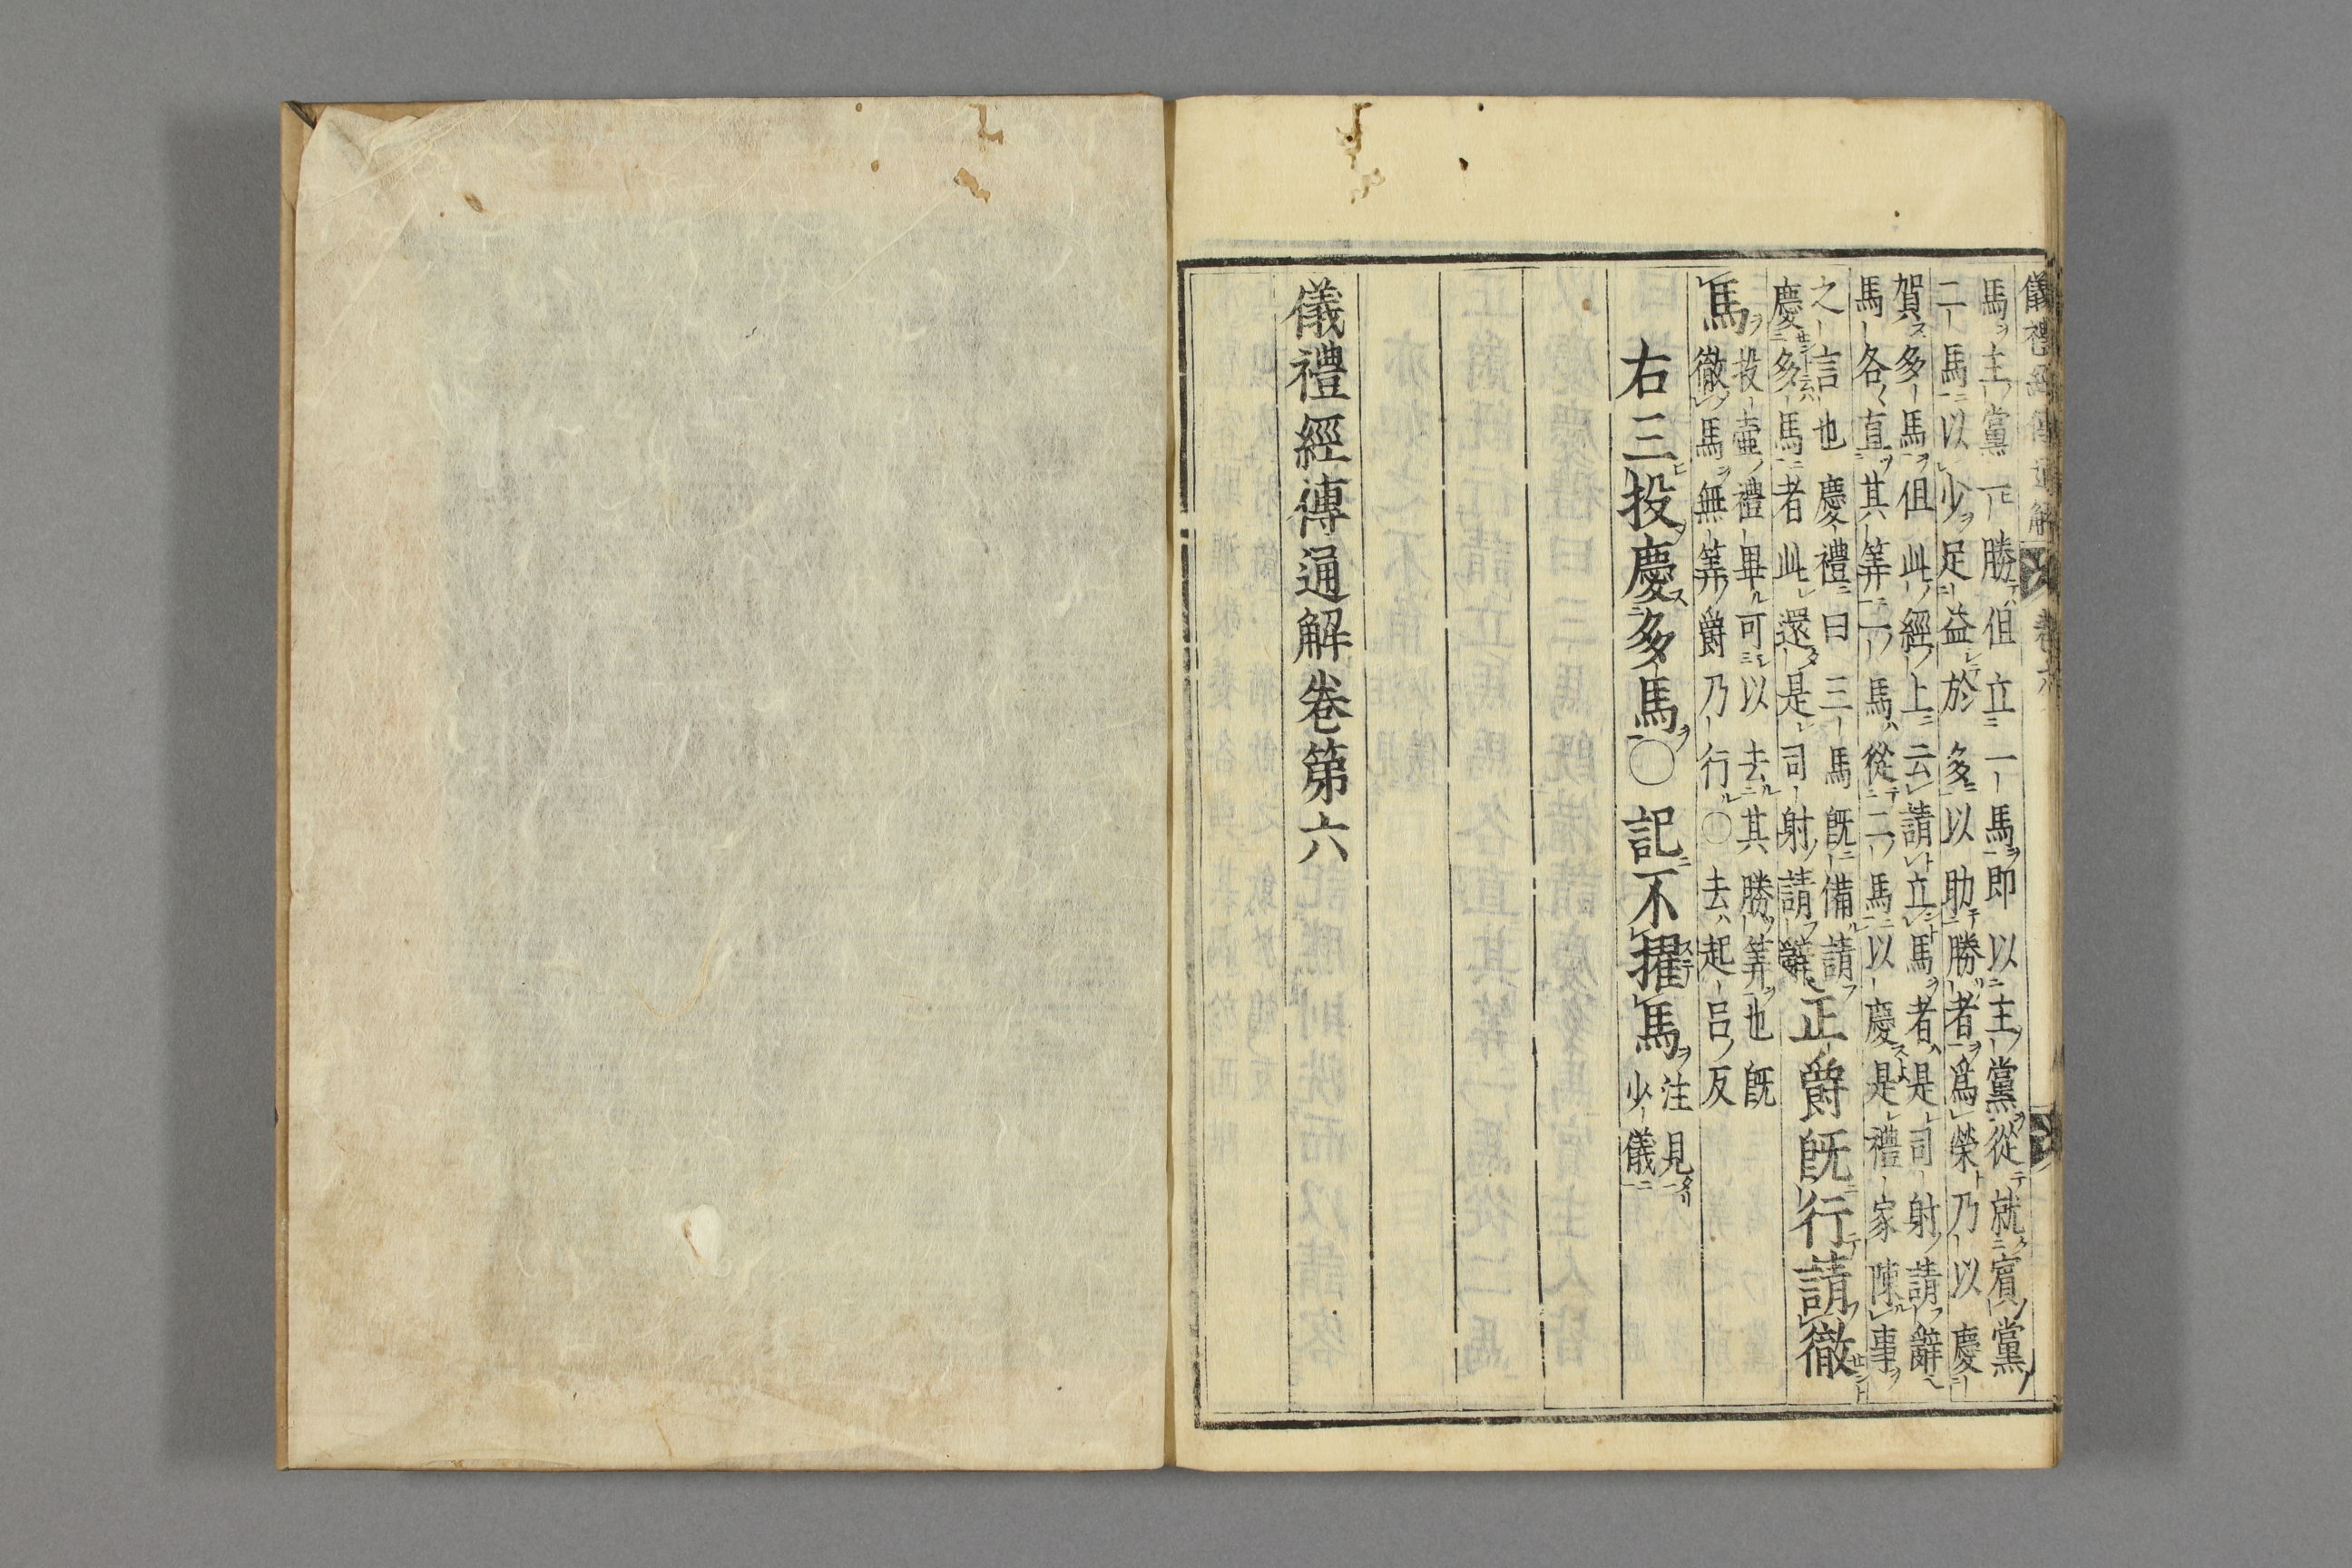 儀禮經傳通解 卷六
馬主黨一勝但立一馬即以主黨從就賓黨
二馬以少足益於多以助勝者爲榮乃以慶
賀多馬但此經上云請立馬者是司射請辭
馬各直其筭二馬從二馬以慶是禮家陳事
之言也慶禮曰三馬旣備請
慶多馬者此還是司射請辭
正爵旣行請徹
馬
投壺禮畢可以去其勝筭也旣
徹馬無筭爵乃行〇去起呂反
右三投慶多馬〇記不擢馬
注見
少儀
儀禮經傳通解卷第六